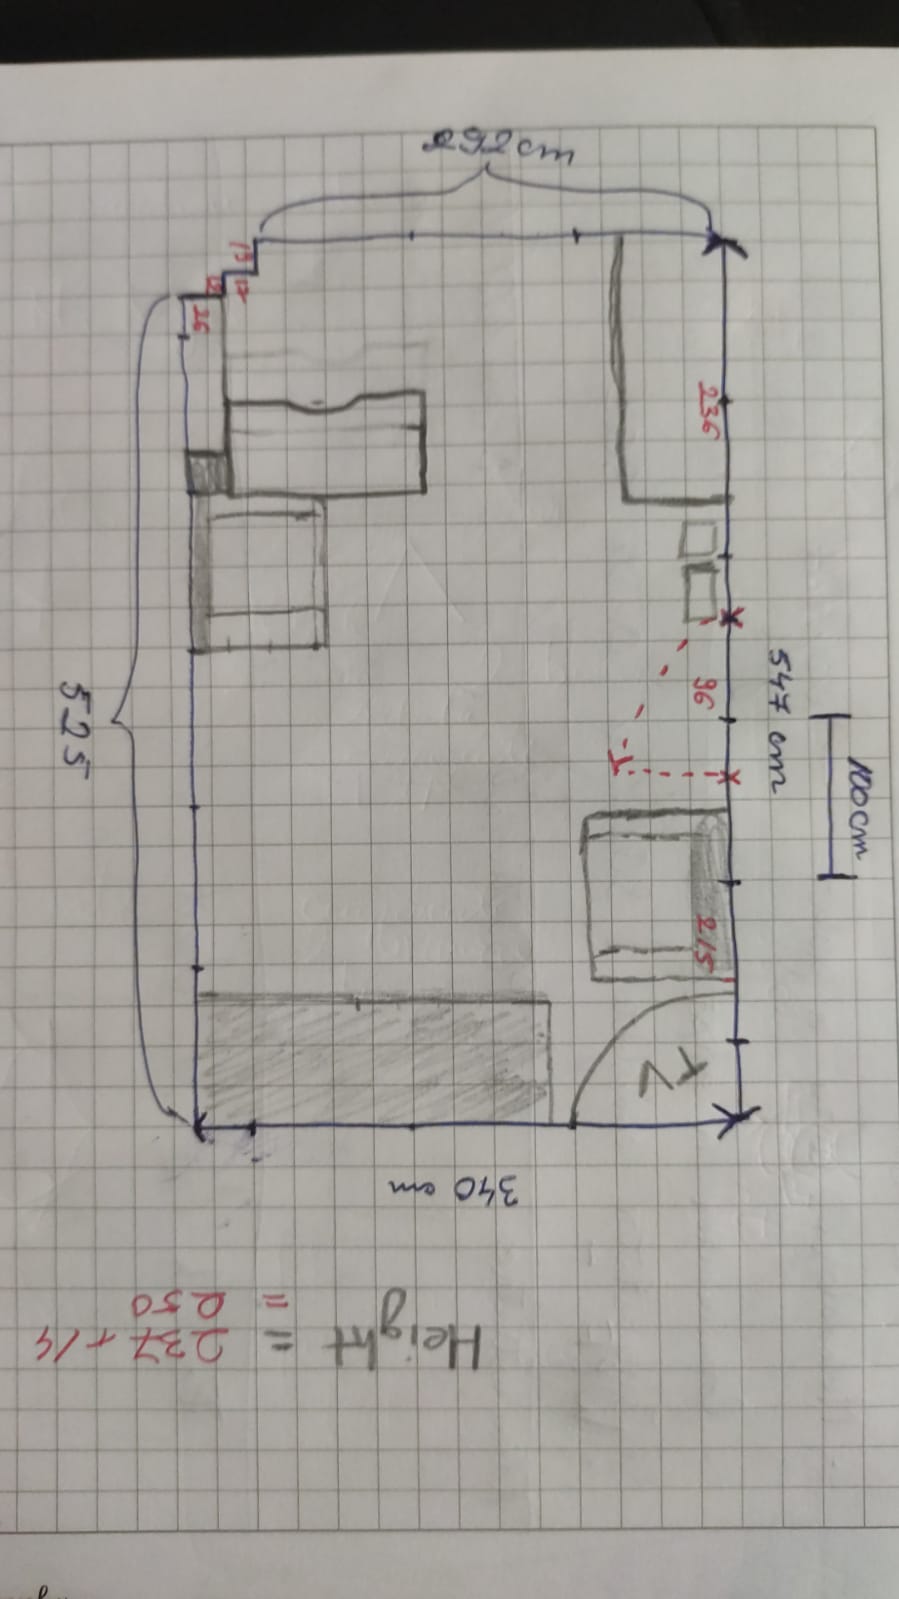 292 cm
13
12
12
26
236
547 cm
96
100 cm
525
215
TV
340 cm
Height = 237 + 14
= 250